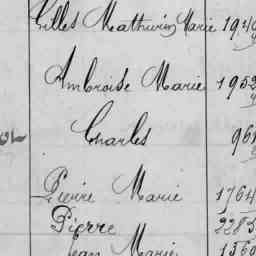 Gilles Mathurin Marie 1940
Ambroise Marie 1952
Charles 961
Pierre Marie 1764
Pierre 2283
Jean Marie 1360